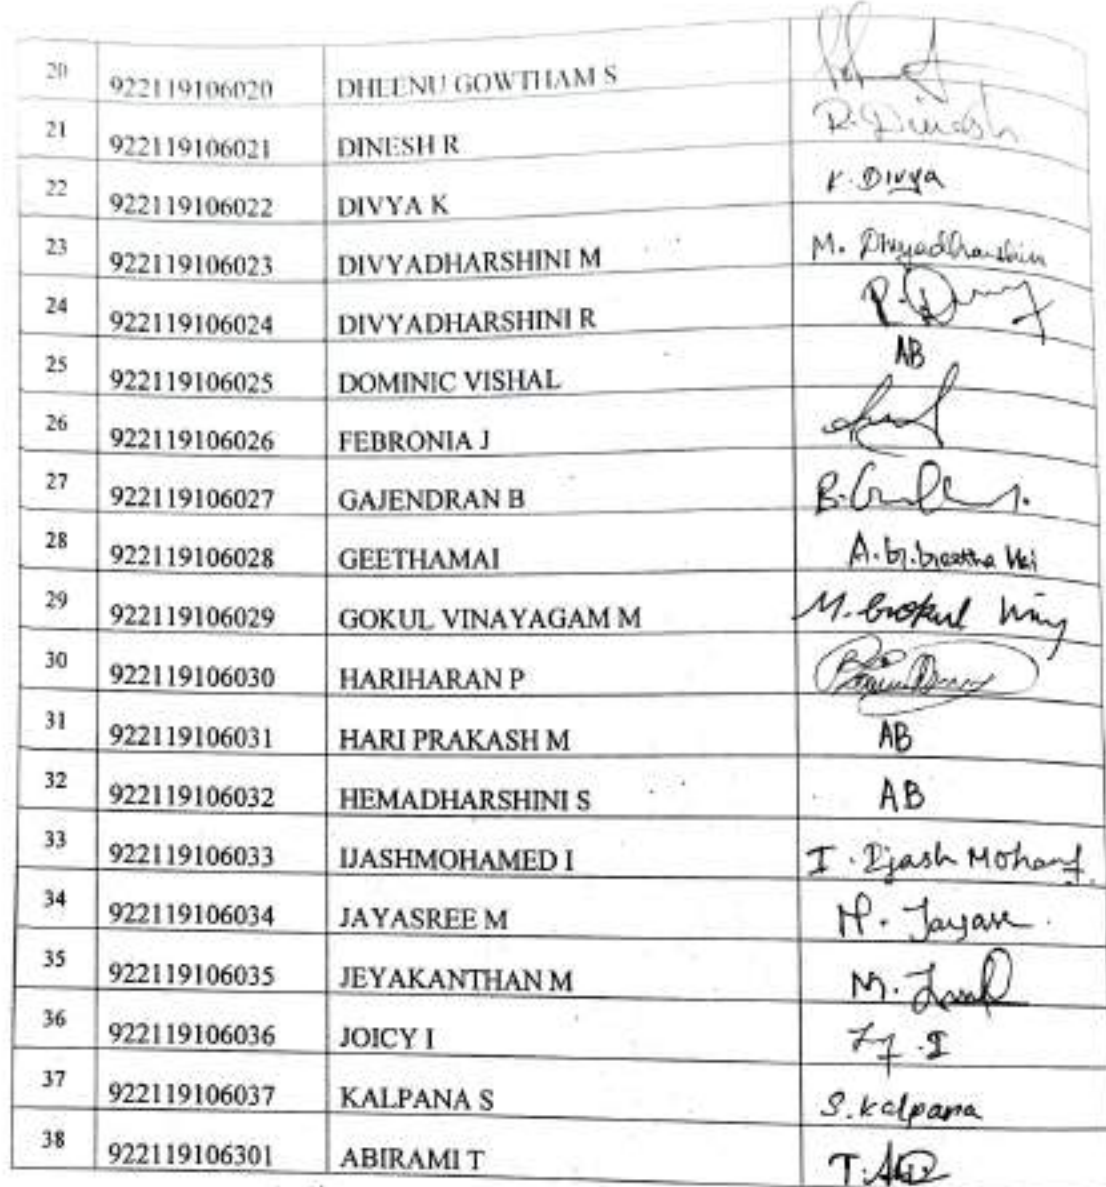 20 922119106020 DHEENU GOWTHAM S
21 922119106021 DINESH R R. Dinesh
22 922119106022 DIVYA K K. Divya
23 922119106023 DIVYADHARSHINI M M. Divyadharshini
24 922119106024 DIVYADHARSHINI R
25 922119106025 DOMINIC VISHAL AB
26 922119106026 FEBRONIA J
27 922119106027 GAJENDRAN B
28 922119106028 GEETHAMAI
29 922119106029 GOKUL VINAYAGAM M M. Gokul
30 922119106030 HARIHARAN P
31 922119106031 HARI PRAKASH M AB
32 922119106032 HEMADHARSHINI S AB
33 922119106033 IJASHMOHAMED I I. Ijash
34 922119106034 JAYASREE M
35 922119106035 JEYAKANTHAN M M.
36 922119106036 JOICY I
37 922119106037 KALPANA S S. Kalpana
38 922119106301 ABIRAMI T